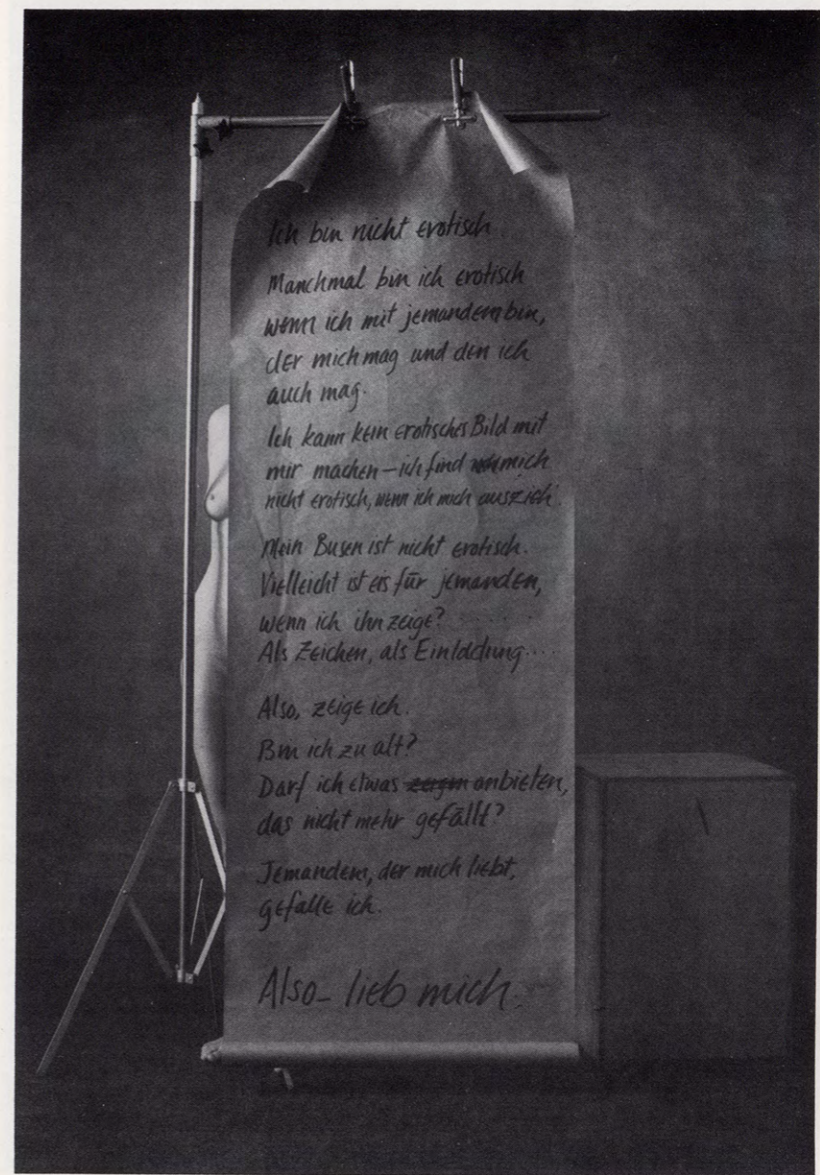 Ich bin nicht erotisch
Manchmal bin ich erotisch
wenn ich mit jemandem bin,
der mich mag und den ich
auch mag.
Ich kann kein erotisches Bild mit
mir machen – ich find mich
nicht erotisch, wenn ich mich auszieh.
Mein Busen ist nicht erotisch.
Vielleicht ist er's für jemanden,
wenn ich ihn zeige?
Als Zeichen, als Einladung....
Also, zeige ich.
Bin ich zu alt?
Darf ich etwas zeigen anbieten,
das nicht mehr gefällt?
Jemandem, der mich liebt,
gefalle ich.
Also – lieb mich.